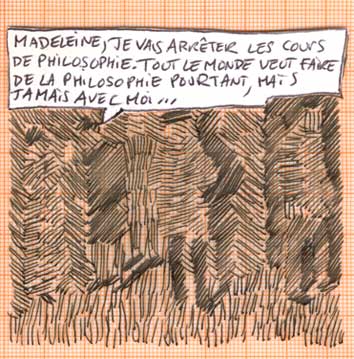 MADELEINE, JE VAIS ARRÊTER LES COURS
DE PHILOSOPHIE. TOUT LE MONDE VEUT FAIRE
DE LA PHILOSOPHIE POURTANT, MAIS
JAMAIS AVEC MOI...